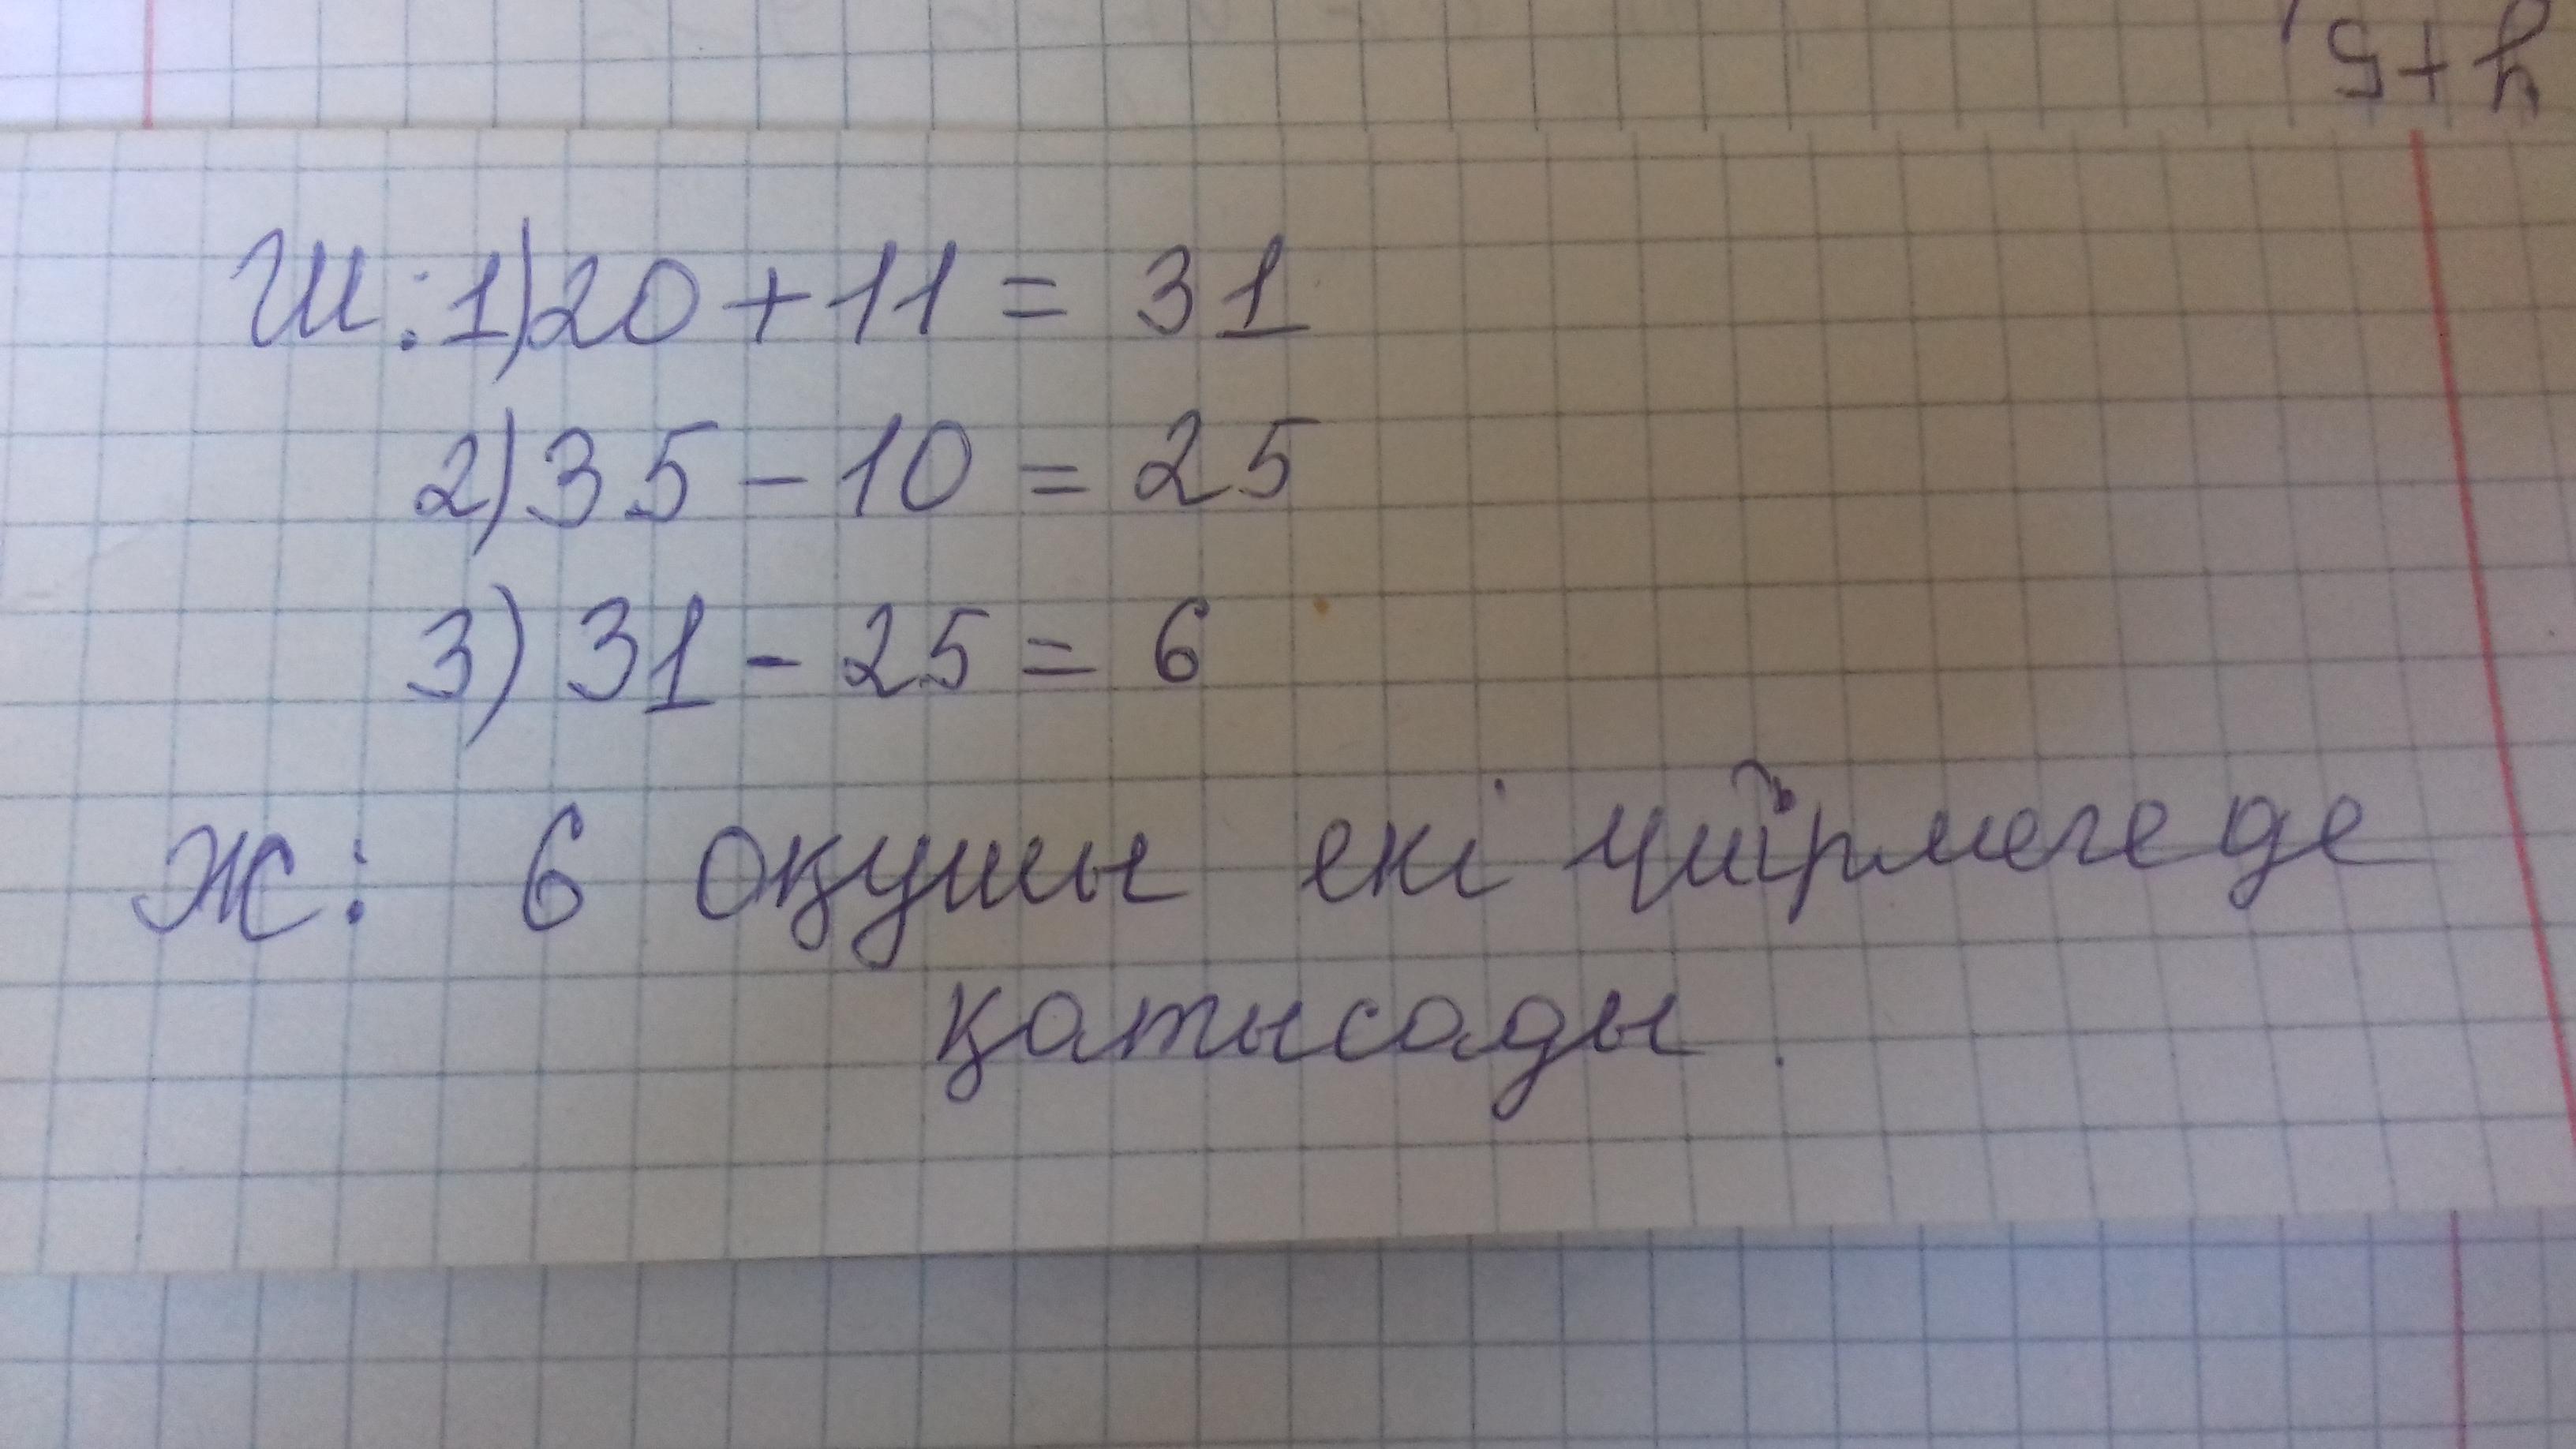 у+5,
Ш: 1) 20 + 11 = 31
2) 35 - 10 = 25
3) 31 - 25 = 6
Ж: 6 оқушы екі үйірмегеде
қатысады.